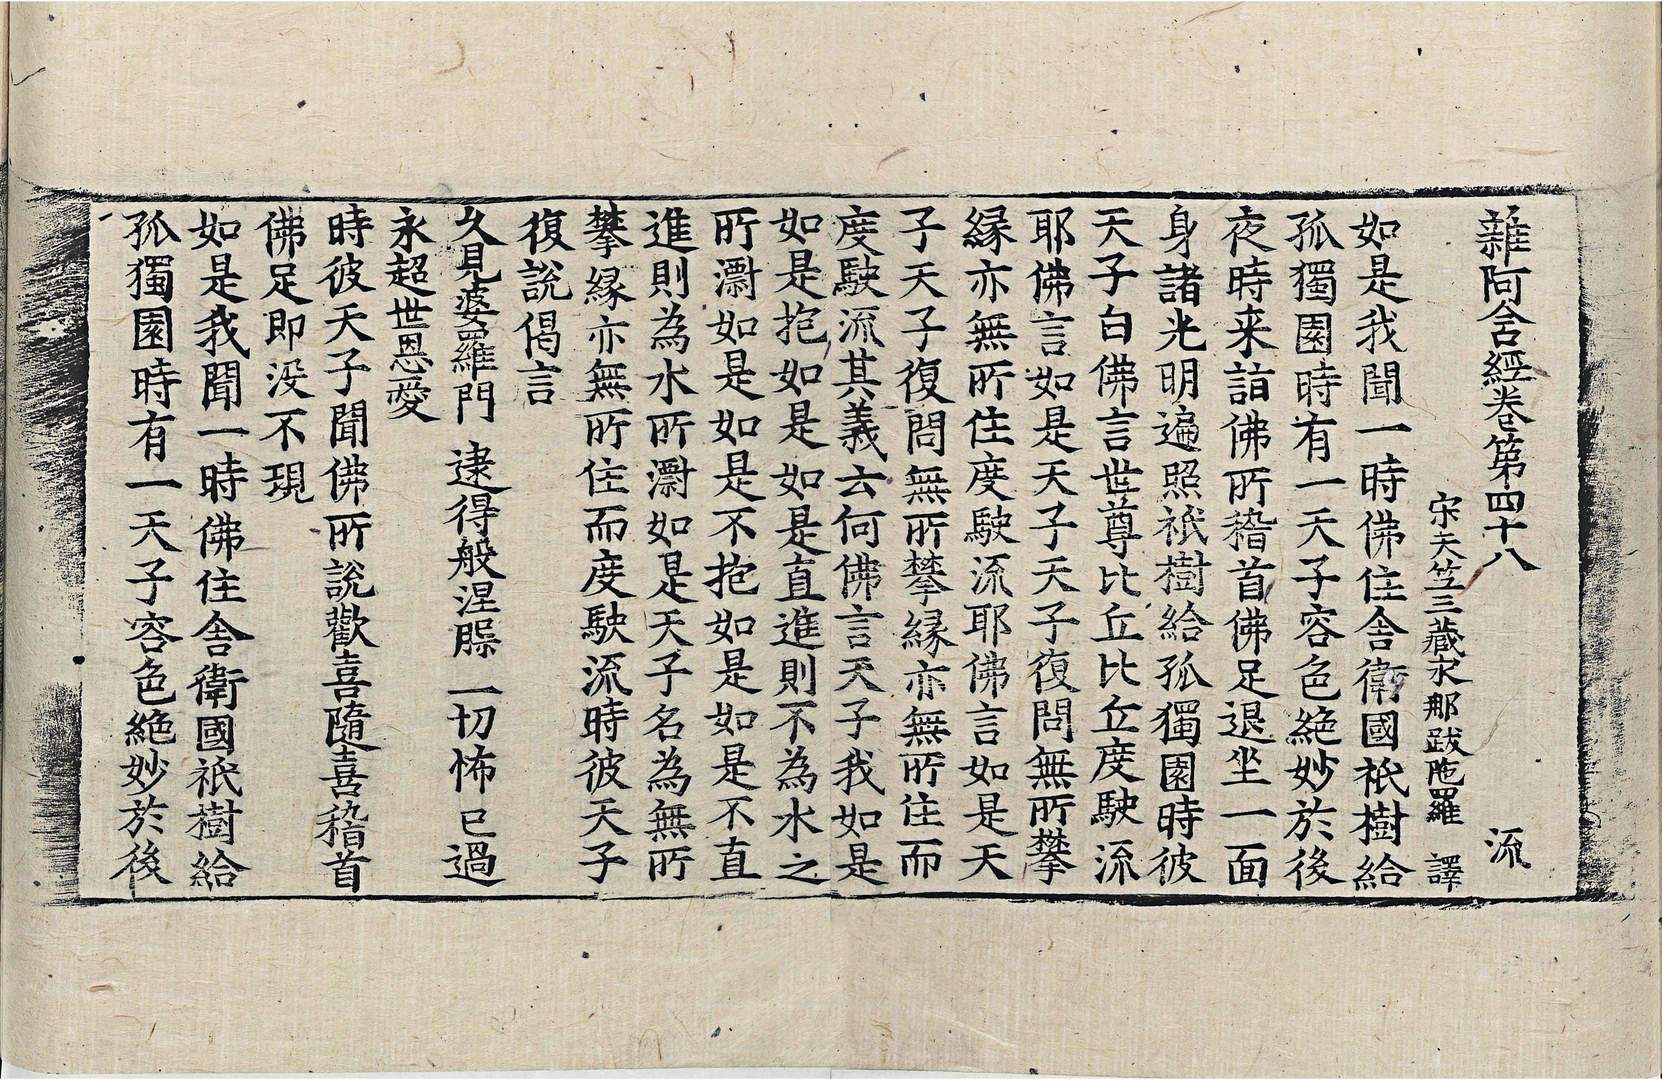 雜阿含經卷第四十八 流
宋天竺三藏求那跋陁羅 譯
如是我聞一時佛住舍衛國祇樹給
孤獨園時有一天子容色絶妙於後
夜時来詣佛所稽首佛足退坐一面
身諸光明遍照祇樹給孤獨園時彼
天子白佛言世尊比丘比丘度駛流
耶佛言如是天子天子復問無所攀
縁亦無所住度駛流耶佛言如是天
子天子復問無所攀縁亦無所住而
度駛流其義云何佛言天子我如是
如是抱如是如是直進則不為水之
所㵱如是如是不抱如是如是不直
進則為水所㵱如是天子名為無所
攀縁亦無所住而度駛流時彼天子
復說偈言
久見婆羅門 逮得般涅槃 一切怖已過
永超世恩愛
時彼天子聞佛所說歡喜隨喜稽首
佛足即没不現
如是我聞一時佛住舍衛國祇樹給
孤獨園時有一天子容色絶妙於後